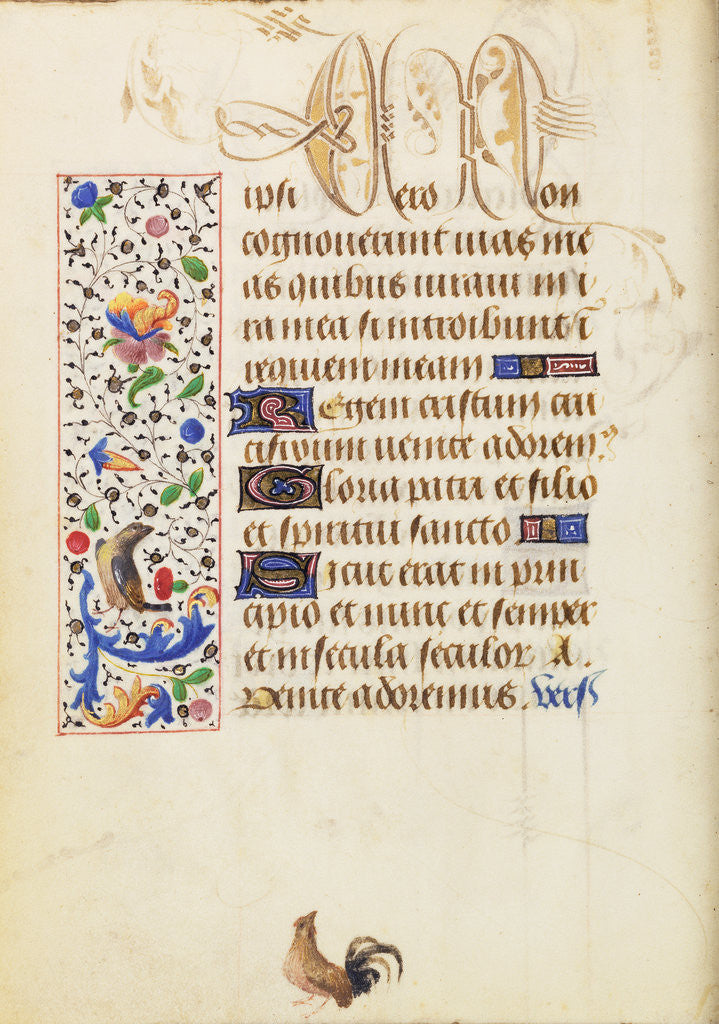 ipsi vero non
cognouerunt uias me
as quibus iuraui in i
ra mea si introibunt ī
requiem meam
Regem cristum cru
cifixum uenite adorem9
Gloria patri et filio
et spiritui sancto
Sicut erat in prin
cipio et nunc et semper
et in secula seculor A.
Venite adoremus. vers